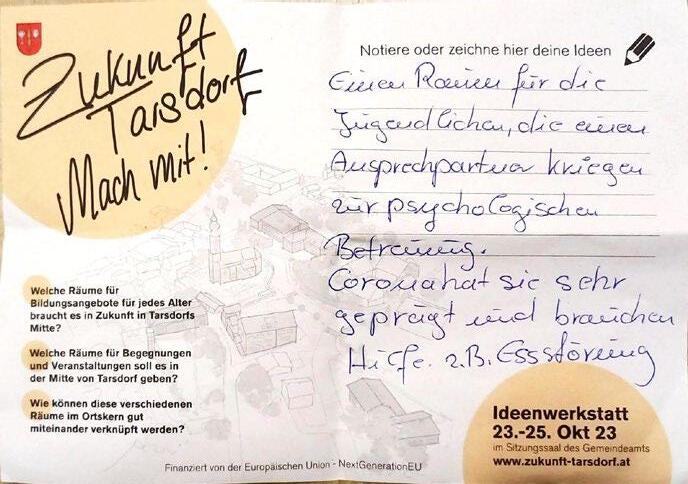 Zukunft
Tarsdorf
Mach mit!
Notiere oder zeichne hier deine Ideen
Einen Raum für die
Jugendlichen, die einen
Ansprechpartner kriegen
zur psychologischen
Betreuung.
Corona hat sie sehr
geprägt und brauchen
Hilfe. z.B. Essstörung
Welche Räume für
Bildungsangebote für jedes Alter
braucht es in Zukunft in Tarsdorfs
Mitte?
Welche Räume für Begegnungen
und Veranstaltungen soll es in
der Mitte von Tarsdorf geben?
Wie können diese verschiedenen
Räume im Ortskern gut
miteinander verknüpft werden?
Ideenwerkstatt
23.-25. Okt 23
im Sitzungssaal des Gemeindeamts
www.zukunft-tarsdorf.at
Finanziert von der Europäischen Union - NextGenerationEU